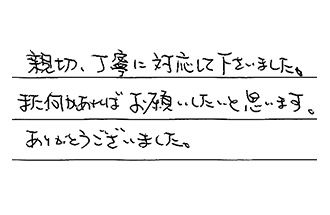 親切、丁寧に対応して下さいました。
また何かあればお願いしたいと思います。
ありがとうございました。